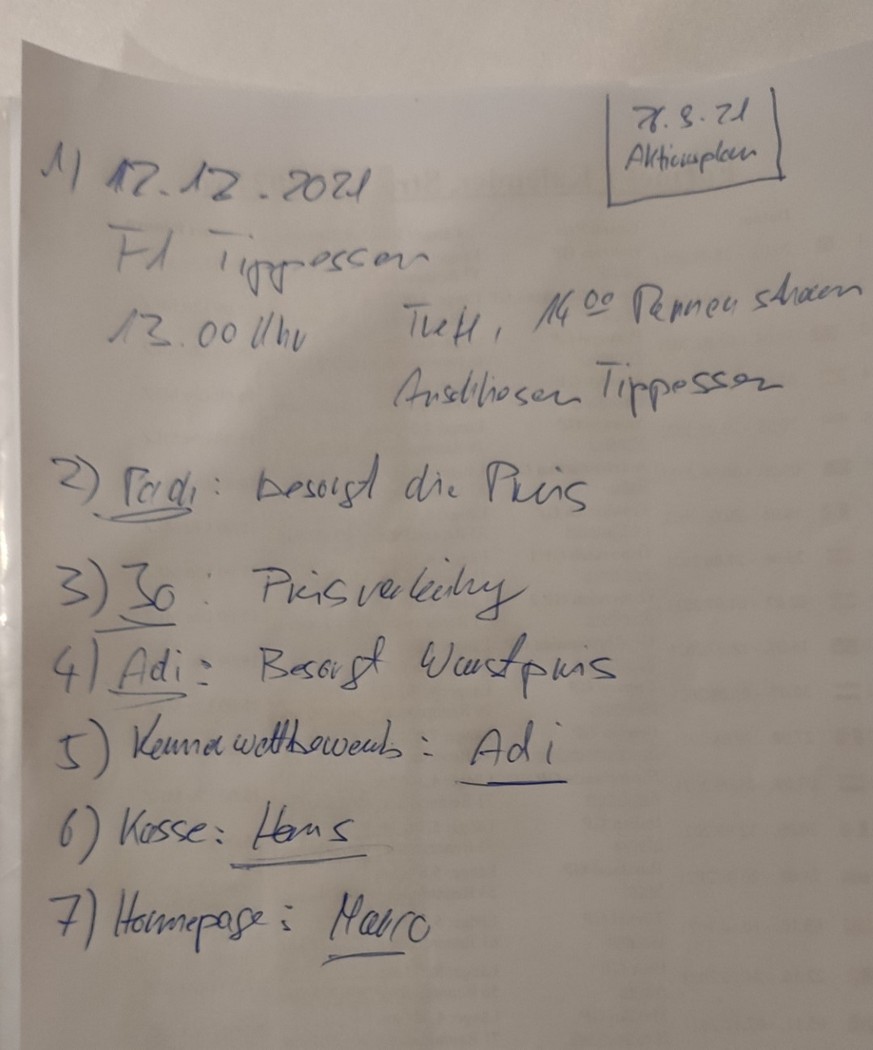 21
Aktionsplan
1) 12.12.2021
F1 Tippessen
13.00 Uhr Treff, 14 00 Rennen
Tippessen
2) besorgt die Preis
3) Jo: Preisverleihung
4) Adi: Besorgt Wurstpreis
5) Kennerwettbewerb: Adi
6) Kasse: Hans
7) Homepage: Mauro